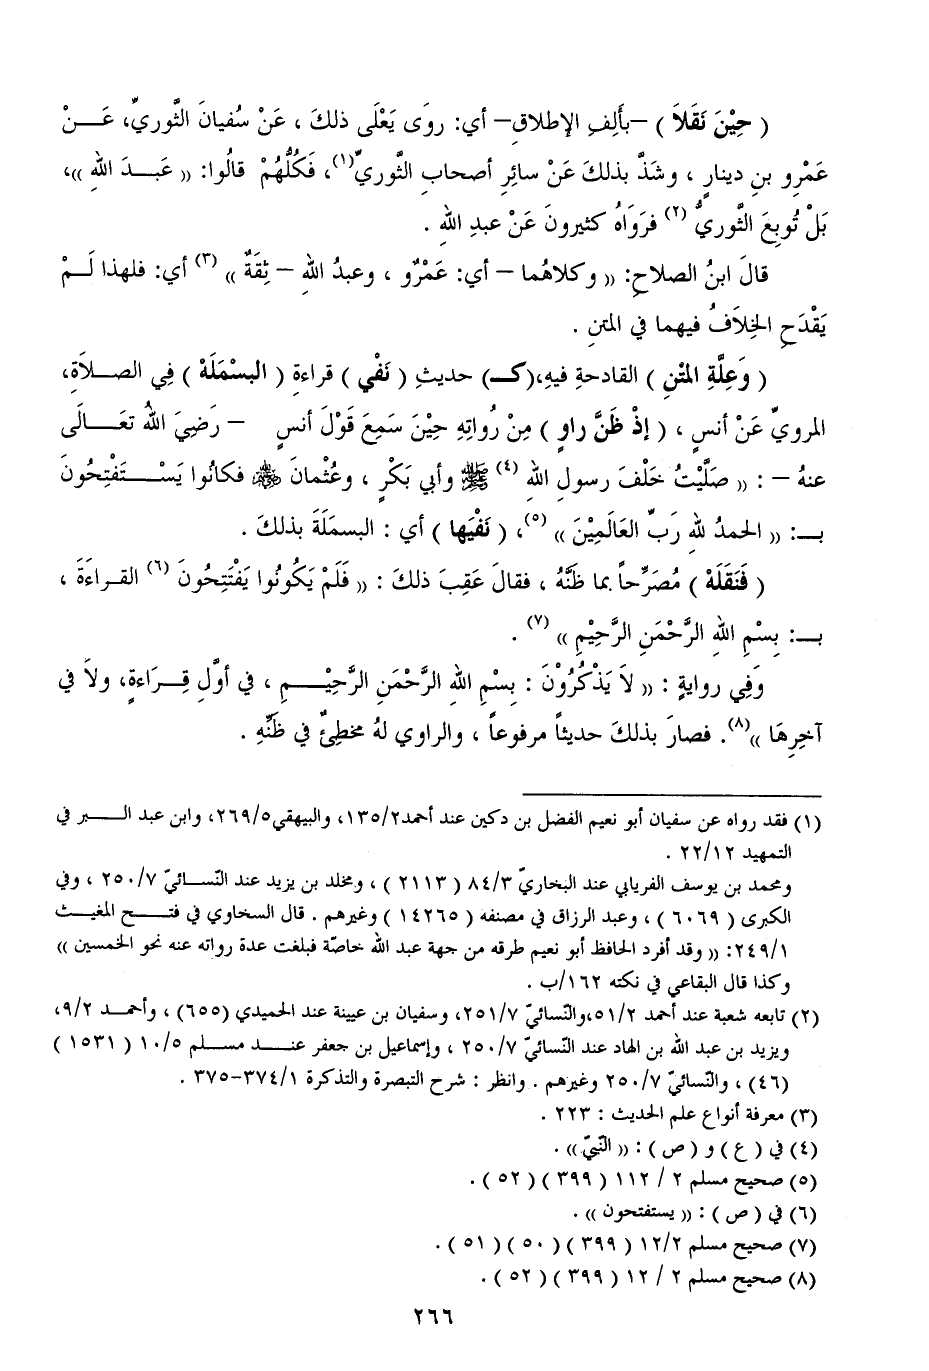 ( حِيْنَ نَقَلاَ ) –بأَلِفِ الإطلاقِ– أي: روَى يَعْلَى ذلكَ ، عَنْ سُفيانَ الثَّوريِّ، عَـــنْ
عَمْرِو بنِ دينارٍ ، وشَذَّ بذلكَ عَنْ سائرِ أصحابِ الثَّوريِّ(١)، فَكُلُّهُمْ قالُوا: « عَبـــدَ اللهِ »،
بَلْ تُوبِعَ الثَّوريُّ (٢) فرَوَاهُ كثيرونَ عَنْ عبدِ اللهِ .
قالَ ابنُ الصلاحِ: « وكلاهُما – أي: عَمْرٌو ، وعبدُ اللهِ – ثِقَةٌ » (٣) أي: فلهذا لَـــمْ
يَقْدَحِ الخِلاَفُ فيهما في المتنِ .
( وَعِلَّةِ المَتْنِ ) القادحةِ فيهِ،(كـــ) حديثِ ( نَفْي ) قراءةِ ( البسْمَلَهْ ) فِي الصـــلاَةِ،
المرويِّ عَنْ أنسٍ ، ( إذْ ظَنَّ راوٍ ) مِنْ رُواتِهِ حِيْنَ سَمِعَ قَوْلَ أنسٍ – رَضِيَ اللهُ تعَـــالَى
عنهُ – : « صَلَّيْتُ خَلْفَ رسولِ اللهِ (٤) ﷺ وأبي بَكْرٍ ، وعُثْمانَ ﷺ فكانُوا يَسْـــتَفْتِحُونَ
بـــ: « الحمدُ للهِ رَبِّ العَالَمِيْنَ » (٥)، ( نَفْيَها ) أي : البسمَلَةَ بذلكَ .
( فَنَقَلَهْ ) مُصَرِّحاً بما ظَنَّهُ ، فقالَ عَقِبَ ذلكَ : « فَلَمْ يَكُونُوا يَفْتَتِحُونَ (٦) القـراءةَ ،
بـــ: بِسْمِ اللهِ الرَّحْمَنِ الرَّحِيْمِ » (٧) .
وَفِي روايةٍ : « لاَ يَذْكُرُوْنَ : بِسْمِ اللهِ الرَّحْمَنِ الرَّحِيْـــمِ ، في أوَّلِ قِـــرَاءةٍ، ولاَ في
آخِرِهَا »(٨). فصارَ بذلكَ حديثاً مرفوعاً ، والراوي لهُ مخطِئٌ في ظَنِّهِ .
(١) فقد رواه عن سفيان أبو نعيم الفضل بن دكين عند أحمد٢/١٣٥، والبيهقي٥/٢٦٩، وابن عبد الـــبر في
التمهيد ١٢/ ٢٢ .
ومحمد بن يوسف الفريابي عند البخاريّ ٣/ ٨٤ ( ٢١١٣ ) ، ومخلد بن يزيد عند النّسـائيّ ٧/ ٢٥٠ ، وفي
الكبرى ( ٦٠٦٩ ) ، وعبد الرزاق في مصنفه ( ١٤٢٦٥ ) وغيرهم . قال السخاوي في فتـــح المغيث
١/ ٢٤٩: « وقد أفرد الحافظ أبو نعيم طرقه من جهة عبد الله خاصّة فبلغت عدة رواته عنه نحو الخمسين »
وكذا قال البقاعي في نكته ١٦٢/ب .
(٢) تابعه شعبة عند أحمد ٢/ ٥١،والنّسائيّ ٧/ ٢٥١، وسفيان بن عيينة عند الحميدي (٦٥٥) ، وأحمـــد ٢/ ٩،
ويزيد بن عبد الله بن الهاد عند النّسائيّ ٧/ ٢٥٠ ، وإسماعيل بن جعفر عنـــد مســـلم ٥/ ١٠ ( ١٥٣١ )
(٤٦) ، والنّسائيّ ٧/ ٢٥٠ وغيرهم . وانظر : شرح التبصرة والتذكرة ١/ ٣٧٤-٣٧٥ .
(٣) معرفة أنواع علم الحديث : ٢٢٣ .
(٤) في ( ع ) و ( ص ) : « النّبيّ » .
(٥) صحيح مسلم ٢ / ١١٢ ( ٣٩٩ ) ( ٥٢ ) .
(٦) في ( ص ) : « يستفتحون » .
(٧) صحيح مسلم ٢/ ١٢ ( ٣٩٩ ) ( ٥٠ ) ( ٥١ ) .
(٨) صحيح مسلم ٢ / ١٢ ( ٣٩٩ ) ( ٥٢ ) .
٢٦٦